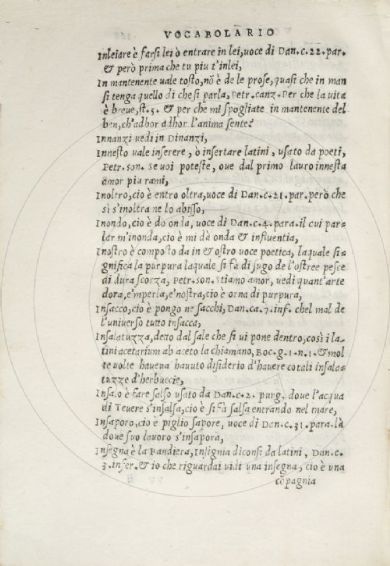 VOCABOLARIO
Inleiare è farsi lei ò entrare in lei, uoce di Dan. c. 22. par.
& però prima che tu piu t'inlei,
In mantenente uale tosto, nõ è de le prose, quasi che in man
si tenga quello di che si parla, Petr. canz. Per che la uita
è breue, st. 5. & per che mi spogliate in mantenente del
ben, ch'adhor adhor l'anima sente?
Innanzi uedi in Dinanzi,
Innesto uale inserere, ò insertare latini, usato da poeti,
Petr. son. Se uoi poteste, oue dal primo lauro innesta
amor piu rami,
Inoltro, cio è entro oltra, uoce di Dan. c. 21. par. però che
si s'inoltra ne lo abisso,
Inondo, cio è do onda, uoce di Dan. c. 4. para. il cui par-
lar m'inonda, cio è mi dà onda & influentia,
Inostro è composto da in & ostro uoce poetica, laquale si-
gnifica la purpura laquale si fà di sugo de l'ostree pesce
di dura scorza, Petr. son. Stiamo amor, uedi quant'arte
dora, e'mperla, e'nostra, cio è orna di purpura,
Insacco, cio è pongo ne sacchi, Dan. ca. 7. inf. chel mal de
l'uniuerso tutto insacca,
Insalatuzza, detto dal sale che si ui pone dentro, così i la-
tini acetarium ab aceto la chiamano, Boc. g. 1. n. 1. & mol
te uolte haueua hauuto disiderio d'hauere cotali insala-
tuzze d'herbuccie,
Insalo è fare salso usato da Dan. c. 2. purg. doue l'acqua
di Teuere s'insalsa, cio è si fà salsa entrando nel mare,
Insaporo, cio è piglio sapore, uoce di Dan. c. 31. para. là
doue suo lauoro s'insapora,
Insegna è la Bandiera, Insignia diconsi da latini, Dan. c.
3. infer. & io che riguardai uidi una insegna, cio è una
cõpagnia